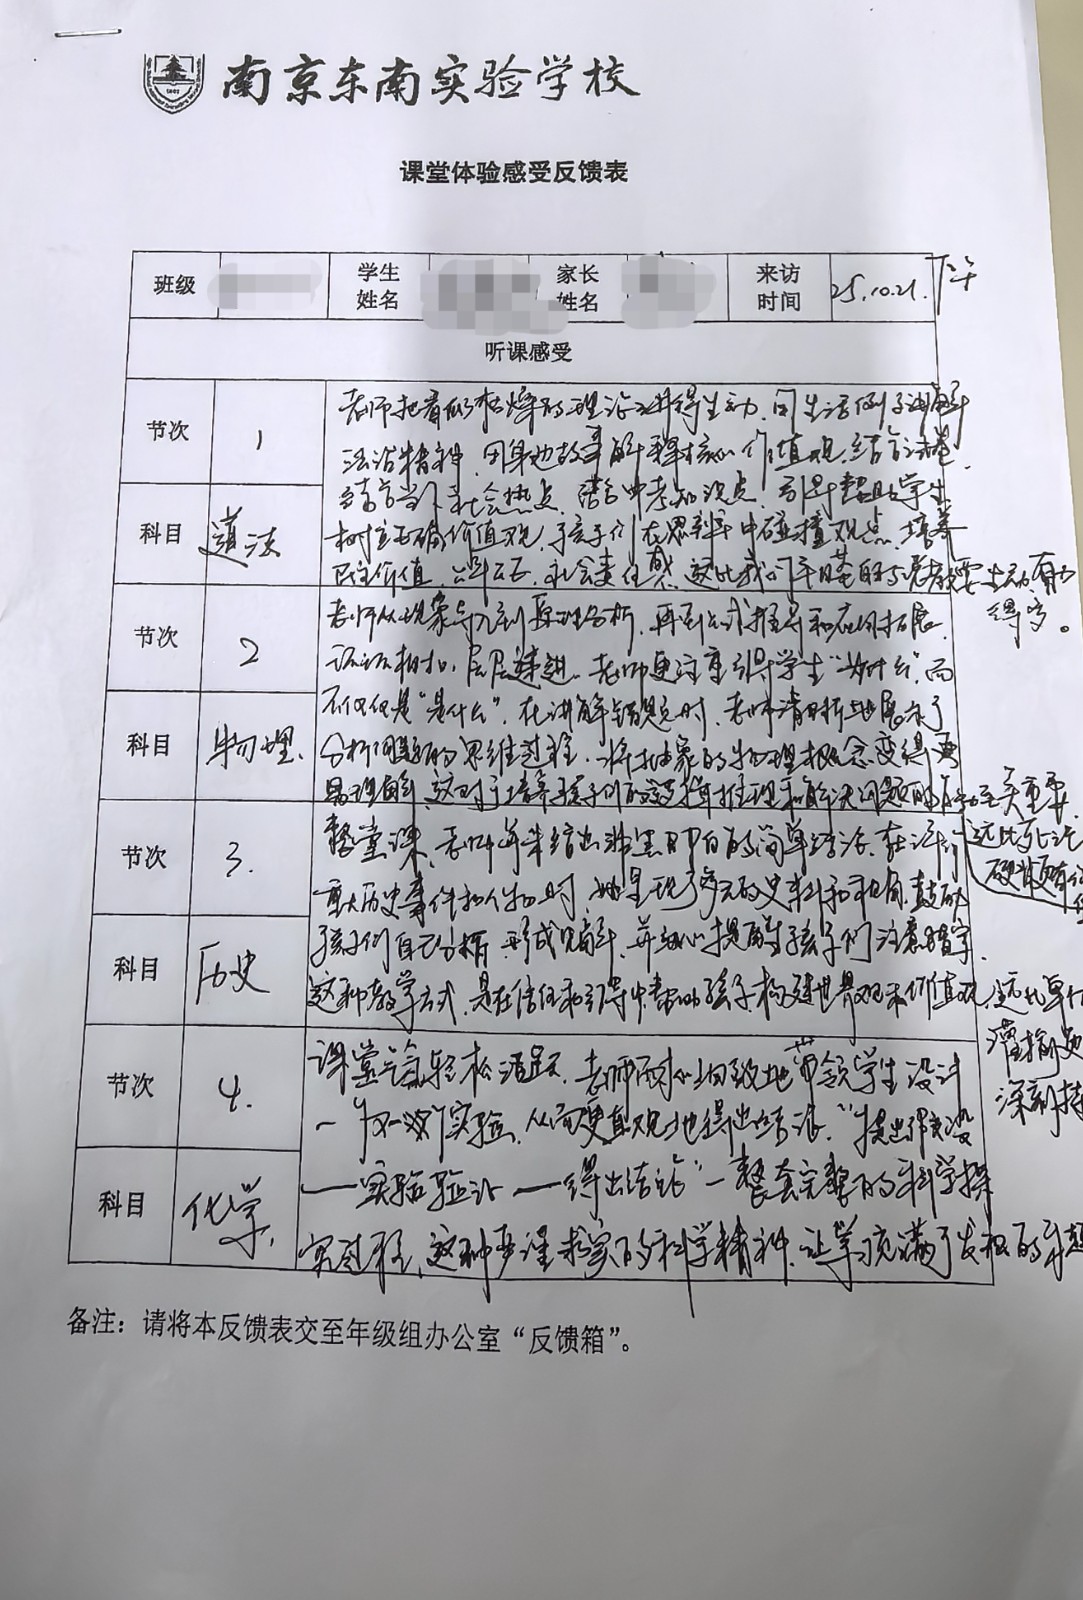 南京东南实验学校
课堂体验感受反馈表
班级 学生姓名 家长姓名 来访时间 25.10.21. 下午
听课感受
节次 1
科目 道法
老师把看似枯燥的理论讲得生动,用生活例子讲解
法治精神,用身边故事解释核心价值观,结合
结合当下社会热点,中考知识点,引导帮助学生
树立正确价值观,孩子们在思辨中碰撞观点,培养
价值,社会责任感,这比我们平日要生动有力
得多。
节次 2
科目 物理.
老师从现象导入到原理分析,再到公式推导和应用拓展,
环环相扣,层层递进。老师更注重引导学生“为什么”,而
不仅仅是“是什么”。在讲解错题时,老师清晰地展示了
分析问题的思维过程,将抽象的物理概念变得更
易理解,这对于培养孩子们的逻辑推理和解决问题的至关重要,
远比死记
硬背
节次 3.
科目 历史
整堂课,老师并未给出非黑即白的简单结论,在评价
重大历史事件和人物时,她呈现了多元的史料和视角,鼓励
孩子们自己分析,形成见解,并细心提醒孩子们注意错字,
这种教学方式,是在信任和引导中帮助孩子构建世界观和价值观,远比单
灌输更
深刻持
节次 4.
科目 化学.
课堂气氛轻松活跃,老师耐心细致地带领学生设计
一个实验,从而更直观地得出结论。“提出假设
——实验验证——得出结论”一整套完整的科学探
究过程,这种严谨求实的科学精神,让学习充满了发现的
备注:请将本反馈表交至年级组办公室“反馈箱”。